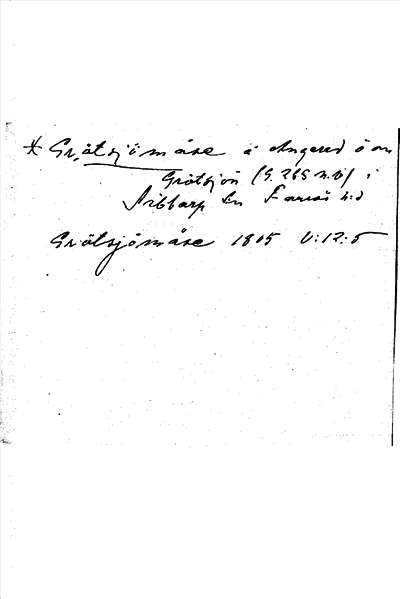 * Grötsjömåse å Angered ö om
Grötsjön (S. 265 n.ö) i
Ribbarp Sn Fareså h:d
Grötsjömåse 1805 U:12:5